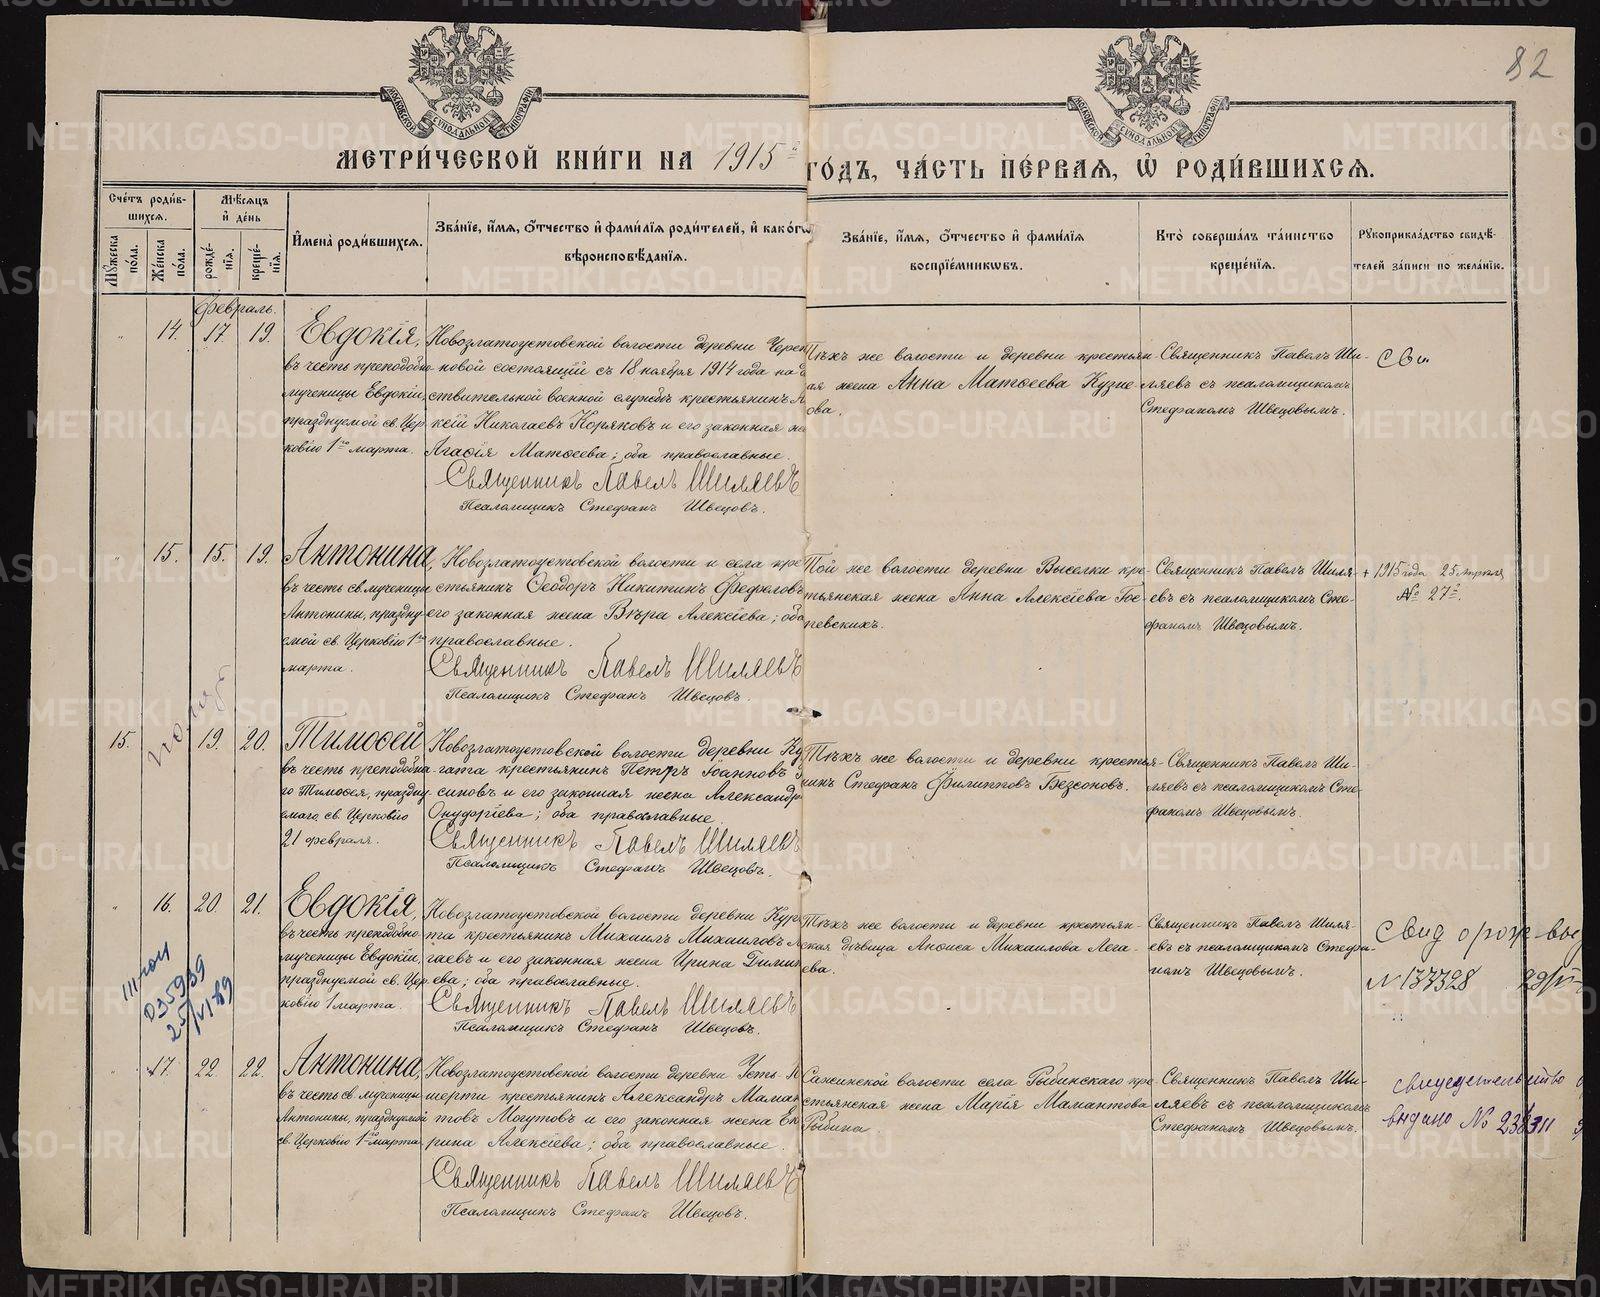 82
МОСКОВСКОЙ СУНОДАЛЬНОЙ ТИПОГРАФІИ
МОСКОВСКОЙ СУНОДАЛЬНОЙ ТИПОГРАФІИ
МЕТРИ́ЧЕСКОЙ КНИ́ГИ НА 1915 ГО́ДЪ, ЧА́СТЬ ПЕ́РВАЯ, Ѡ РОДИ́ВШИХСЯ.
Сче́тъ роди́вшихся.
Му́жеска по́ла.
Же́нска по́ла.
Мѣ́сяцъ и де́нь
рожде́нія.
креще́нія.
Имена̀ роди́вшихся.
Зва́ніе, и́мя, о́тчество и фами́лія роди́телей, и како́гѡ вѣроисповѣ́данія.
Зва́ніе, и́мя, о́тчество и фами́лія воспріе́мниковъ.
Кто̀ соверша́лъ та́инство креще́нія.
Рукоприкла́дство свидѣ́телей за́писи по жела́нію.
Февраль.
14. 17. 19.
Евдокія,
въ честь преподобно
мученицы Евдокіи,
празднуемой св. Цер
ковію 1го марта.
Новозлатоустовской волости деревни Череп
новой состоящій съ 18 ноября 1914 года на дѣ
ствительной военной службѣ крестьянинъ
кей Николаевъ Коряковъ и его законная же
Агаѳія Матѳеева; оба православные.
Священникъ Павелъ Шиляевъ
Псаломщикъ Стефанъ Швецовъ.
Тѣхъ же волости и деревни крестьян
ая жена Анна Матѳеева Кузне
ова.
Священникъ Павелъ Ши-
ляевъ съ псаломщикомъ
Стефаномъ Швецовымъ.
15. 15. 19.
Антонина,
въ честь св. мученицы
Антонины, праздну
емой св. Церковію 1го
марта.
Новозлатоустовской волости и села кре
стьянинъ Ѳеодоръ Никитинъ Фефиловъ
его законная жена Вѣра Алексіева; оба
православные.
Священникъ Павелъ Шиляевъ
Псаломщикъ Стефанъ Швецовъ.
Той же волости деревни Выселки кре-
тьянская жена Анна Алексіева Гос-
певскихъ.
Священникъ Павелъ Шиля-
евъ съ псаломщикомъ Сте-
фаномъ Швецовымъ.
+ 1915 года 25 апрѣля
№ 27.
15. 19. 20.
Тимоѳей
въ честь преподобна
го Тимоѳея, праздну
емаго св. Церковію
21 февраля.
Новозлатоустовской волости деревни Ку
гата крестьянинъ Петръ Іоанновъ
синовъ и его законная жена Александр
Онуфріева; оба православные.
Священникъ Павелъ Шиляевъ
Псаломщикъ Стефанъ Швецовъ.
Тѣхъ же волости и деревни крестья-
нинъ Стефанъ Филипповъ Безсоновъ.
Священникъ Павелъ Ши-
ляевъ съ псаломщикомъ Сте-
фаномъ Швецовымъ.
16. 20. 21.
Евдокія,
въ честь преподобно
мученицы Евдокіи,
празднуемой св. Цер
ковію 1 марта.
Новозлатоустовской волости деревни Кур
та крестьянинъ Михаилъ Михаиловъ
гаевъ и его законная жена Ирина Дими
ева; оба православные.
Священникъ Павелъ Шиляевъ
Псаломщикъ Стефанъ Швецовъ.
Тѣхъ же волости и деревни крестьян-
ская дѣвица Анѳиса Михаилова Лега-
ева.
Священникъ Павелъ Шиля-
евъ съ псаломщикомъ Стефа-
номъ Швецовымъ.
Свид о рож
N 137328
17. 22. 22.
Антонина,
въ честь св. мученицы
Антонины, празднуемой
св. Церковію 1го марта.
Новозлатоустовской волости деревни Усть-
шерти крестьянинъ Александръ Маман
товъ Могутовъ и его законная жена Ек
рина Алексіева; оба православные.
Священникъ Павелъ Шиляевъ
Псаломщикъ Стефанъ Швецовъ.
Сажинской волости села Рыбинскаго кре-
стьянская жена Марія Мамантова
Рыбина.
Священникъ Павелъ Ши-
ляевъ съ псаломщикомъ
Стефаномъ Швецовымъ.
свидетельство
выдано №
METRIKI.GASO-URAL.RU